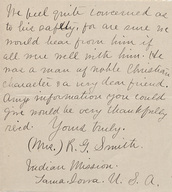 We feel quite concerned as
to his safety, for are sure we
would hear from him if
all were well with him. He
was a man of noble Christian
character & a very dear friend.
Any information you could
give would be very thankfully
rec'd. Yours truly,
(Mrs.) R. G. Smith.
Indian Mission.
Tama Iowa. U. S. A.